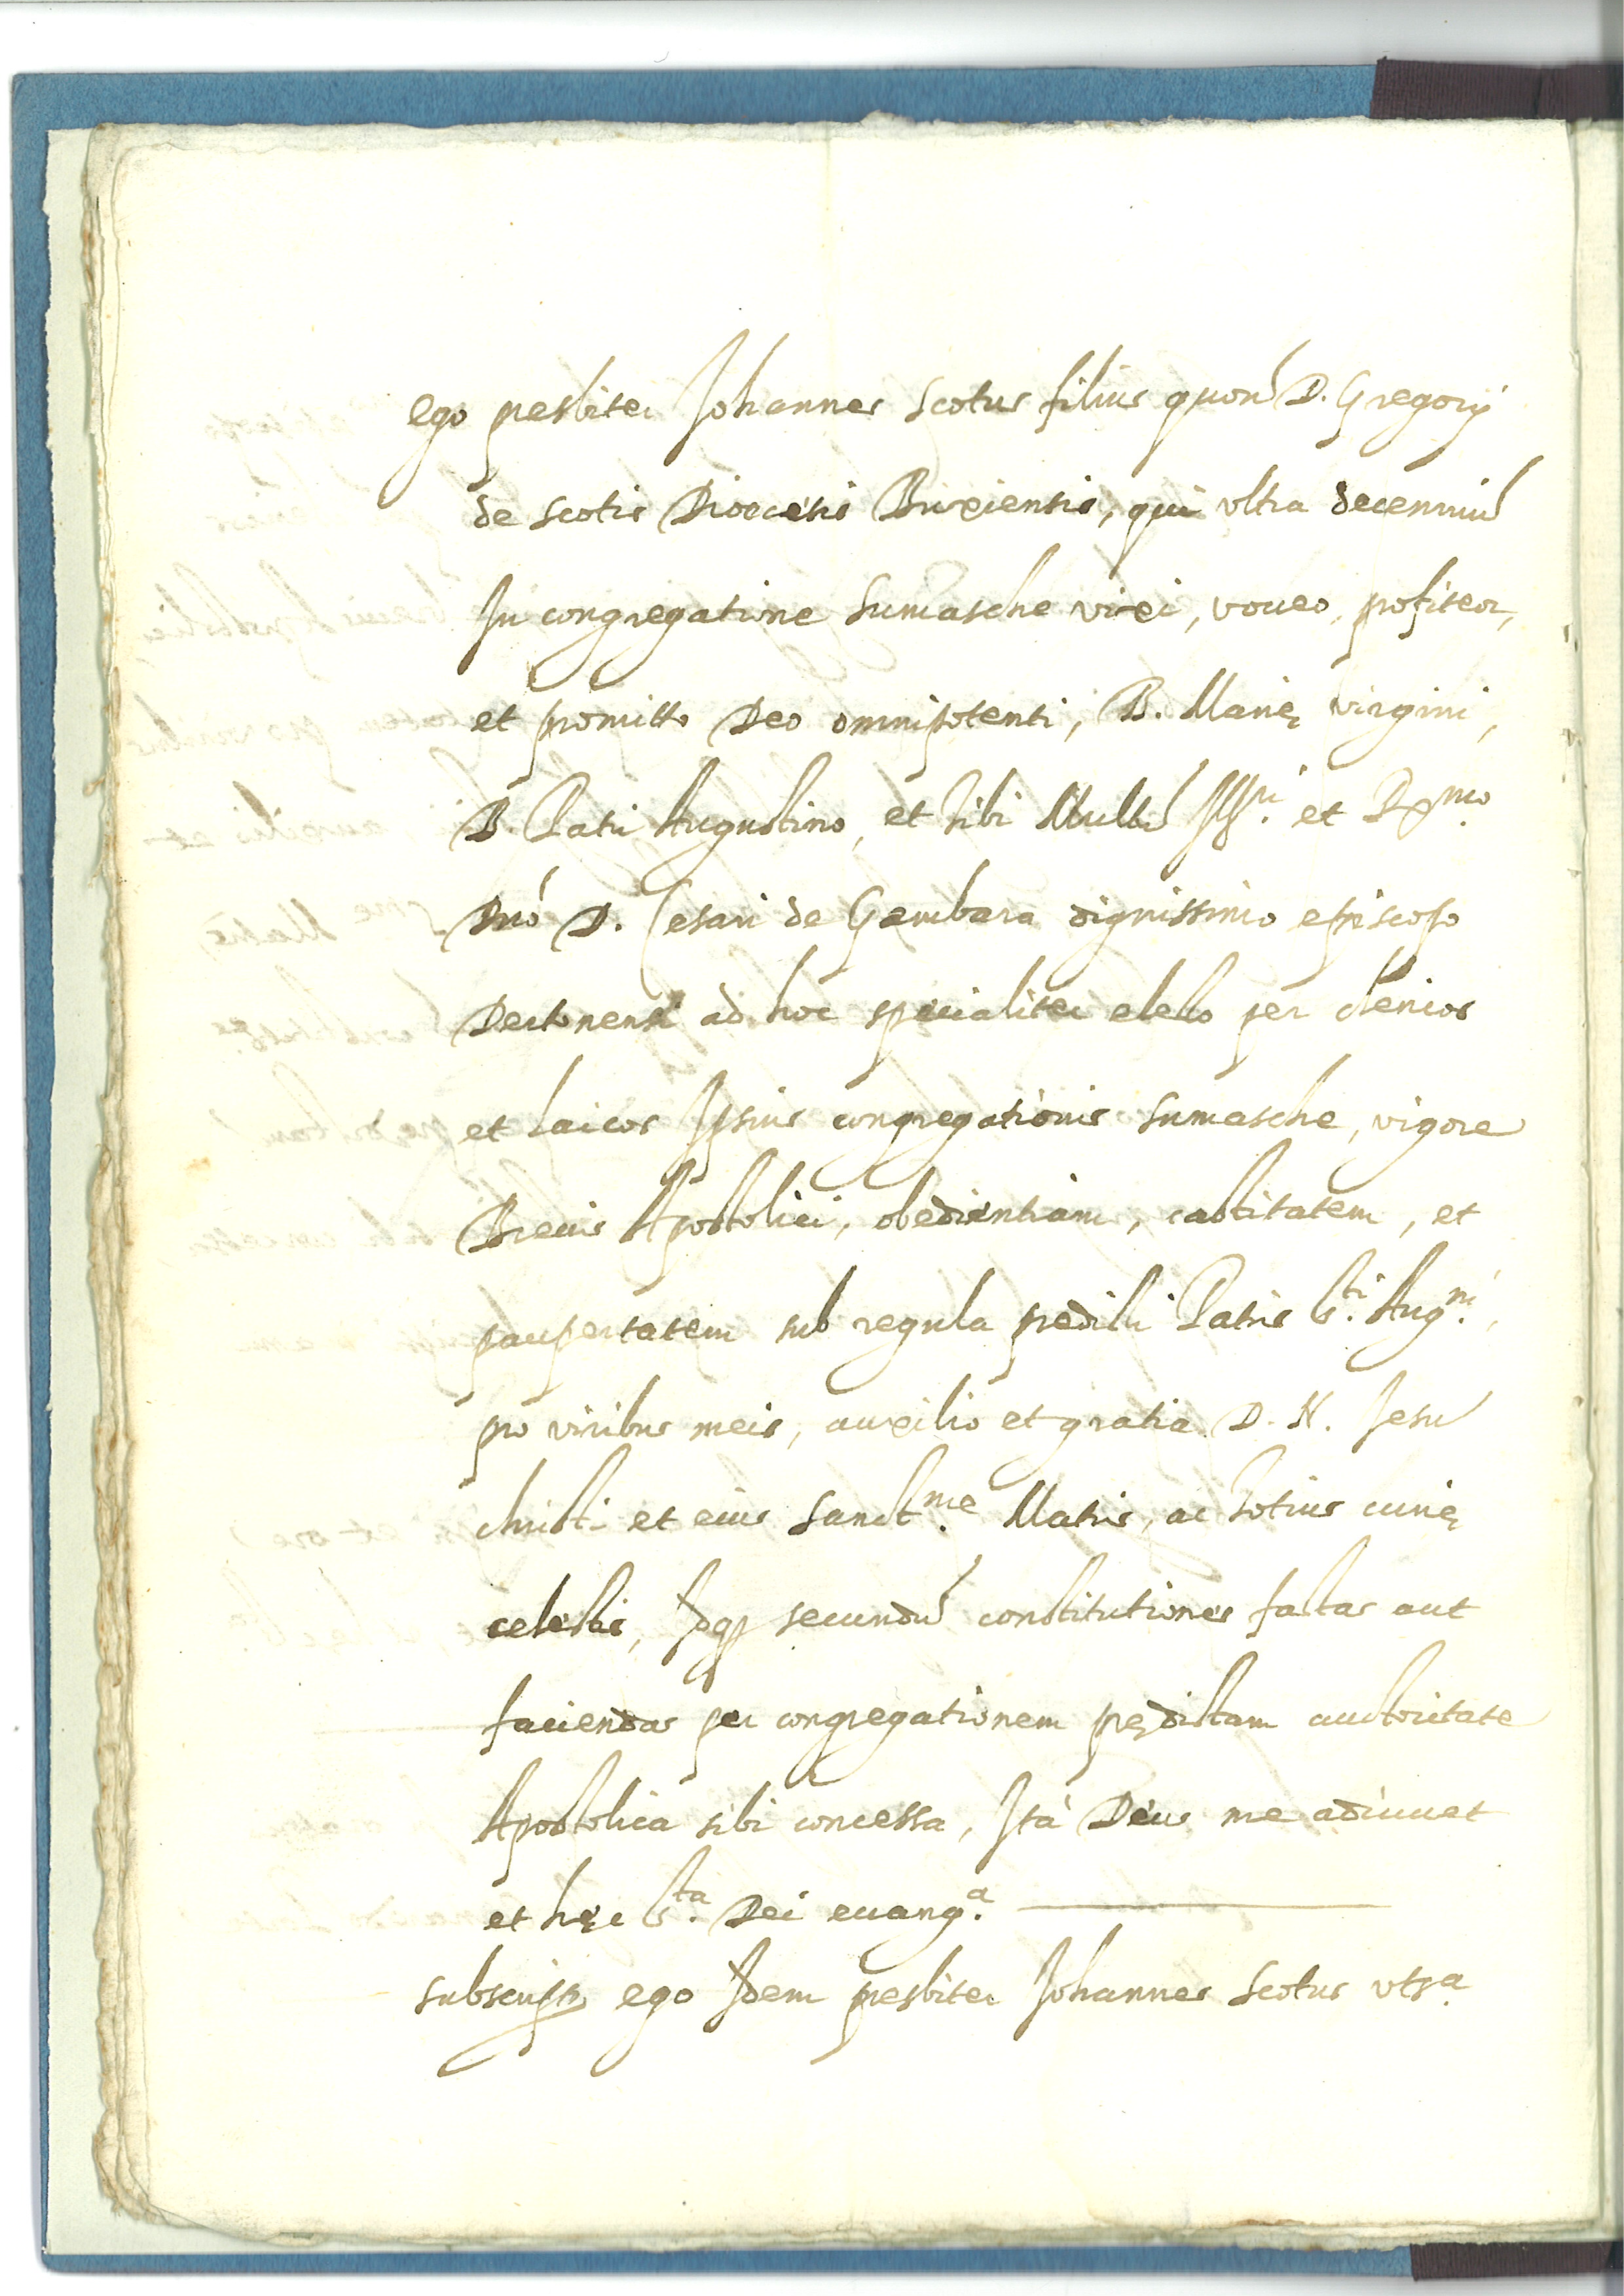 ego presbiter Johannes Scotus filius quon̄ D. Gregorij
de scotis Diocesis Brixiensis, qui vltra decenniū
In congregatione Sumasche vixi, voueo, profiteor,
et promitto Deo omnipotenti, B. Marię virgini,
B. Patri Augustino, et tibi Multū Ill.ri et R.mo
Dnō D. Cesari de Gambara dignissimo episcopo
Dertonensi ad hoc specialiter electo per clericos
et laicos Ipsius congregationis Sumasche, vigore
Breuis Apostolici, obedientiam, castitatem, et
paupertatem sub regula predicti Patris S.ti Aug.ni,
pro viribus meis, auxilio et gratia D. N. Jesu
christi et eius Sanct.me Matris, ac totius curię
celestis, Idq̄ secundū constitutiones factas aut
faciendas per congregationem pędictam auctoritate
Apostolica sibi concessa, Ità Deus me adiuuet
et hęc S.ta Dei euang.a
subscripsi ego Idem presbiter Johannes Scotus vts.a